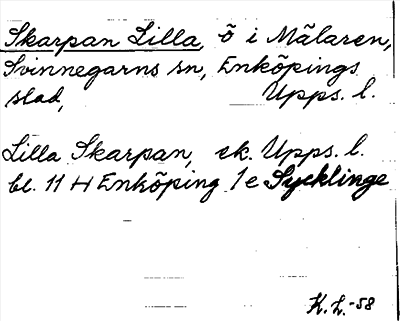 Skarpan Lilla, ö i Mälaren,
Svinnegarns sn, Enköpings
stad, Upps. l.
Lilla Skarpan, ek. Upps. l.
bl. 11 H Enköping 1e Sycklinge
K.L.-58